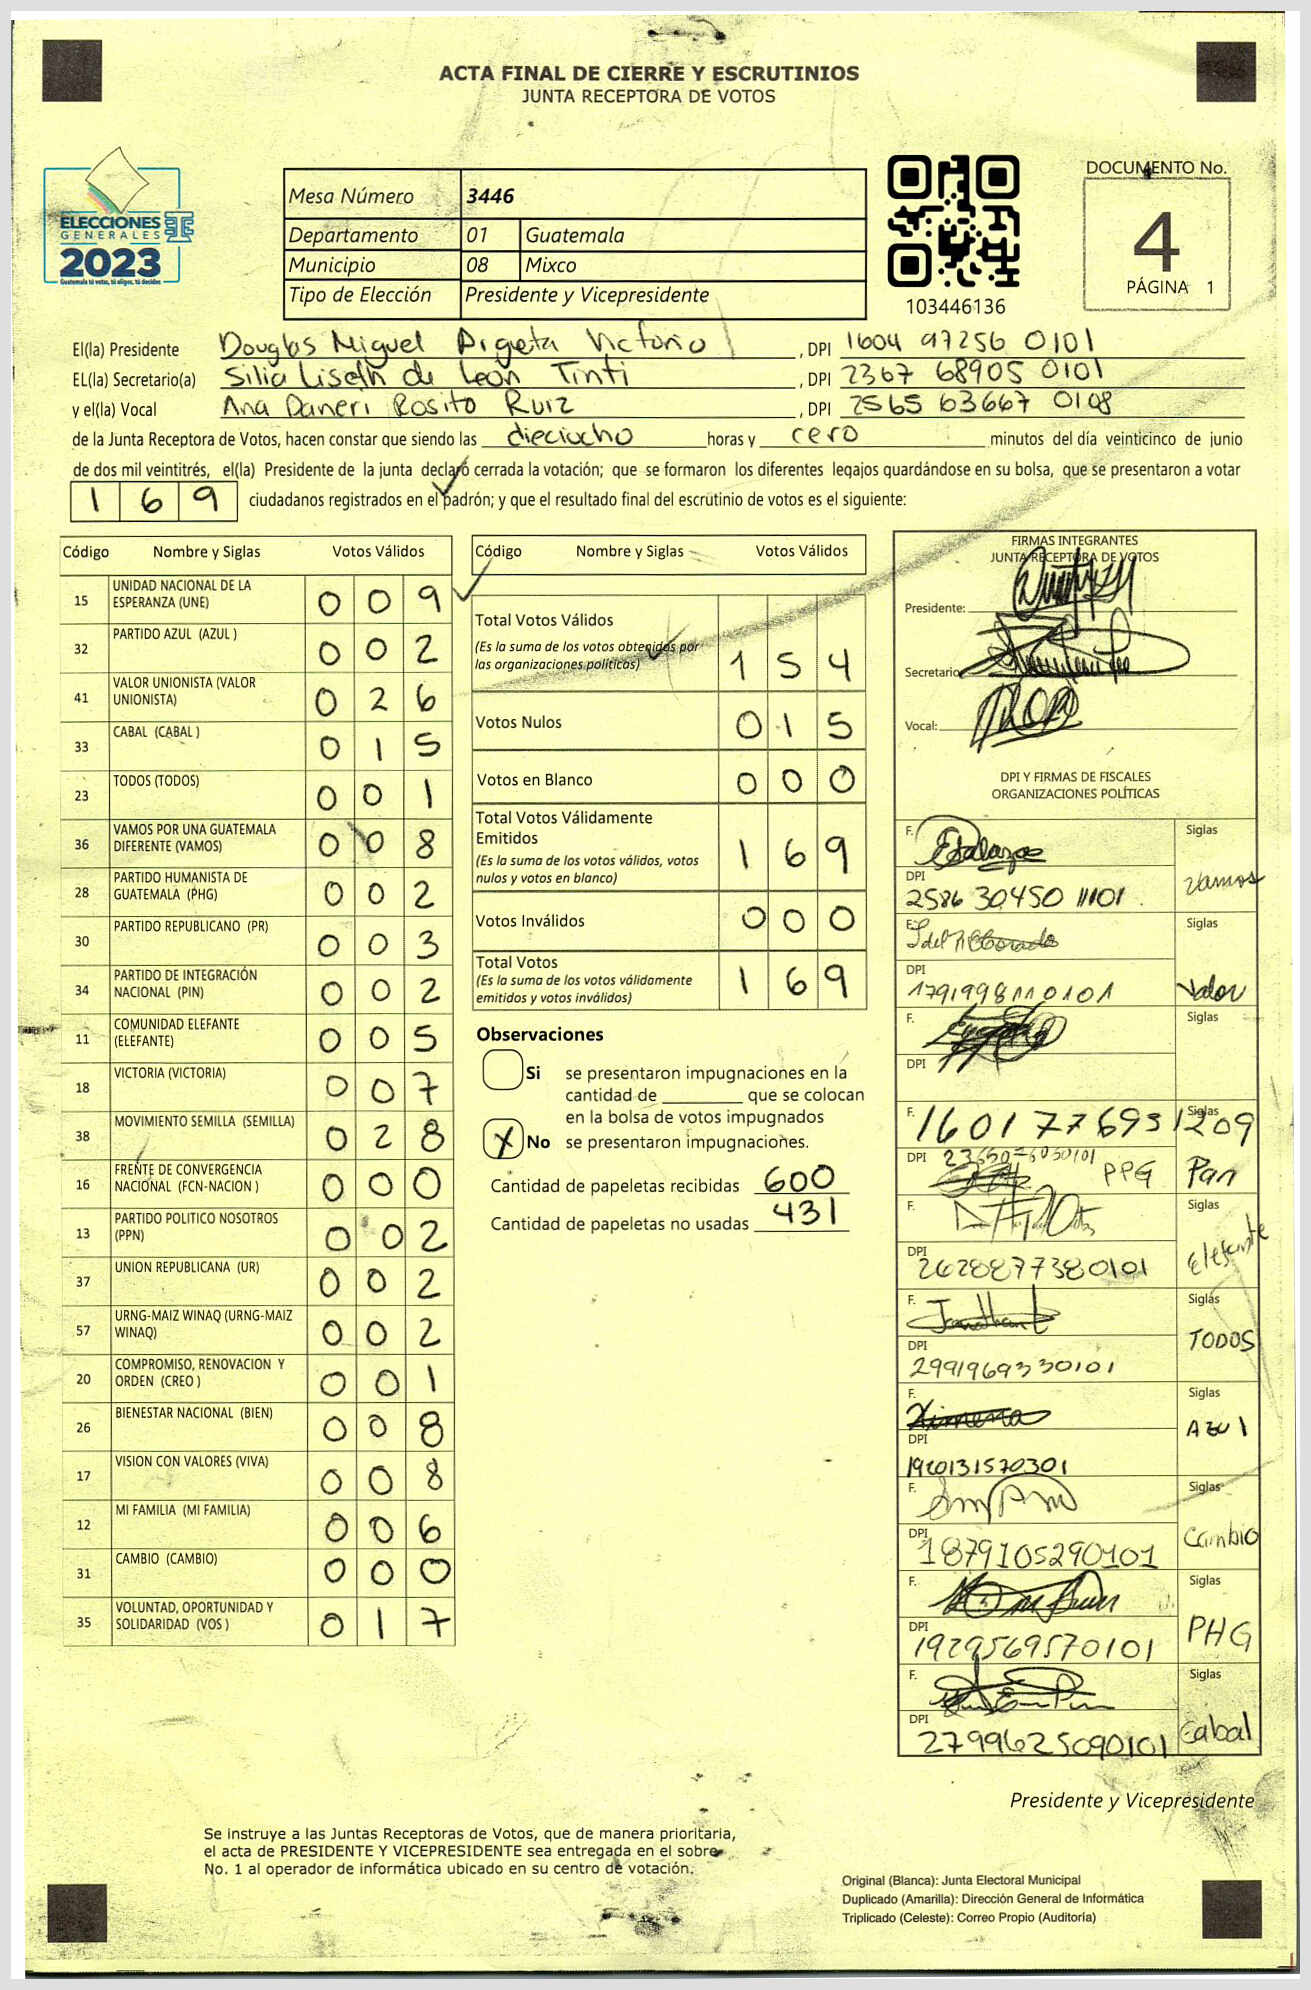 ACTA FINAL DE CIERRE Y ESCRUTINIOS
JUNTA RECEPTORA DE VOTOS
ELECCIONES
GENERALES
2023
Guatemala tú votas, tú eliges, tú decides
Mesa Número 3446
Departamento 01 Guatemala
Municipio 08 Mixco
Tipo de Elección Presidente y Vicepresidente
103446136
DOCUMENTO No.
4
PÁGINA 1
El(la) Presidente Douglas Miguel Argueta Victorio, DPI 1604 97256 0101
EL(la) Secretario(a) Silia Liseth de León Tinti, DPI 2367 68905 0101
y el(la) Vocal Ana Daneri Rosito Ruiz, DPI 2565 63667 0108
de la Junta Receptora de Votos, hacen constar que siendo las dieciocho horas y cero minutos del día veinticinco de junio
de dos mil veintitrés, el(la) Presidente de la junta declaró cerrada la votación; que se formaron los diferentes legajos quardándose en su bolsa, que se presentaron a votar
169 ciudadanos registrados en el padrón; y que el resultado final del escrutinio de votos es el siguiente:
Código Nombre y Siglas Votos Válidos
15 UNIDAD NACIONAL DE LA ESPERANZA (UNE) 009
32 PARTIDO AZUL (AZUL ) 002
41 VALOR UNIONISTA (VALOR UNIONISTA) 026
33 CABAL (CABAL ) 015
23 TODOS (TODOS) 001
36 VAMOS POR UNA GUATEMALA DIFERENTE (VAMOS) 008
28 PARTIDO HUMANISTA DE GUATEMALA (PHG) 002
30 PARTIDO REPUBLICANO (PR) 003
34 PARTIDO DE INTEGRACIÓN NACIONAL (PIN) 002
11 COMUNIDAD ELEFANTE (ELEFANTE) 005
18 VICTORIA (VICTORIA) 007
38 MOVIMIENTO SEMILLA (SEMILLA) 028
16 FRENTE DE CONVERGENCIA NACIONAL (FCN-NACION ) 000
13 PARTIDO POLITICO NOSOTROS (PPN) 002
37 UNION REPUBLICANA (UR) 002
57 URNG-MAIZ WINAQ (URNG-MAIZ WINAQ) 002
20 COMPROMISO, RENOVACION Y ORDEN (CREO ) 001
26 BIENESTAR NACIONAL (BIEN) 008
17 VISION CON VALORES (VIVA) 008
12 MI FAMILIA (MI FAMILIA) 006
31 CAMBIO (CAMBIO) 000
35 VOLUNTAD, OPORTUNIDAD Y SOLIDARIDAD (VOS ) 017
Código Nombre y Siglas Votos Válidos
Total Votos Válidos 154
(Es la suma de los votos obtenidos por
las organizaciones políticas)
Votos Nulos 015
Votos en Blanco 000
Total Votos Válidamente
Emitidos 169
(Es la suma de los votos válidos, votos
nulos y votos en blanco)
Votos Inválidos 000
Total Votos 169
(Es la suma de los votos válidamente
emitidos y votos inválidos)
Observaciones
Si se presentaron impugnaciones en la
cantidad de ________ que se colocan
en la bolsa de votos impugnados
X No se presentaron impugnaciones.
Cantidad de papeletas recibidas 600
Cantidad de papeletas no usadas 431
FIRMAS INTEGRANTES
JUNTA RECEPTORA DE VOTOS
Presidente:
Secretario
Vocal:
DPI Y FIRMAS DE FISCALES
ORGANIZACIONES POLÍTICAS
F. Siglas
DPI Vamos
2586 30450 1101
F. Siglas
DPI
1791998110101 Valor
F. Siglas
DPI
F. 1601776931209 Siglas
DPI PPG Pan
F. Siglas
DPI Elefante
2628877380101
F. Jonathan Siglas
DPI TODOS
2991969330101
F. Ximena Siglas
DPI AZUl
1920131570301
F. Siglas
DPI Cambio
1879105290101
F. Siglas
DPI PHG
1929569570101
F. Siglas
DPI Cabal
2799625090101
Presidente y Vicepresidente
Se instruye a las Juntas Receptoras de Votos, que de manera prioritaria,
el acta de PRESIDENTE Y VICEPRESIDENTE sea entregada en el sobre
No. 1 al operador de informática ubicado en su centro de votación.
Original (Blanca): Junta Electoral Municipal
Duplicado (Amarilla): Dirección General de Informática
Triplicado (Celeste): Correo Propio (Auditoría)